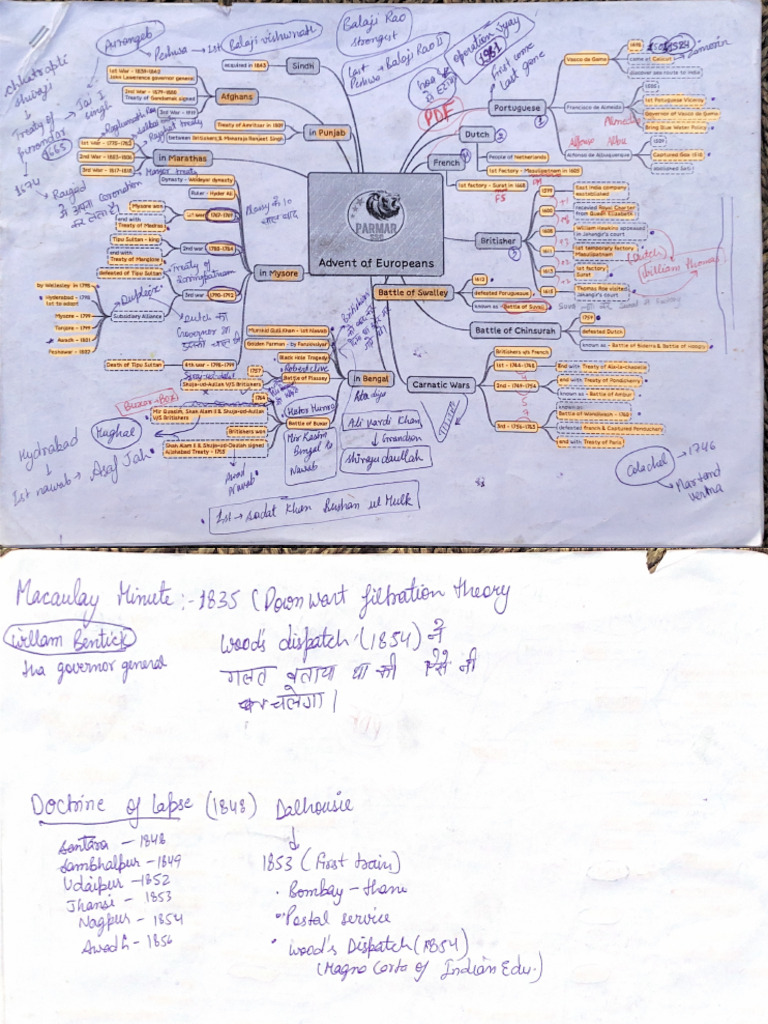 Aurangeb
Peshwa → 1st Balaji vishwanath
Balaji Rao
strongest
Last
Peshwa → Balaji Rao II
operation vijay
1961
first come
last gone
PDF
chhatrapti
shivaji
Treaty of
purandar
1665
Jai
singh
1674
Advent of Europeans
PARMAR
SSC
Sindh
acquired in 1843
Afghans
1st War - 1839-1842
John Lawerence governor general
2nd War - 1879-1880
Treaty of Gandamak signed
3rd War - 1919
in Punjab
Treaty of Amritsar in 1809
between Britishers & Maharaja Ranjeet Singh
in Marathas
1st War - 1775-1782
2nd War - 1803-1806
3rd War - 1817-1818
in Mysore
Dynasty - Wodeyar dynasty
Ruler - Hyder Ali
1st war 1767-1769
Mysore won
end with
Treaty of Madras
2nd war 1780-1784
Tipu Sultan - king
end with
Treaty of Manglore
defeated of Tipu Sultan
3rd war 1790-1792
Subsidiary Alliance
by Wellesley in 1798
Hyderabad - 1798
1st to adopt
Mysore - 1799
Tanjore - 1799
Awadh - 1801
Peshawar - 1802
4th war - 1798-1799
Death of Tipu Sultan
in Bengal
Murshid Quli Khan - 1st Nawab
Golden Farman - by Farukhsiyar
Black Hole Tragedy
Robert clive
1757
Battle of Plassey
Shuja-ud-Aullan V/S Britishers
1764
Battle of Buxar
Hector Munro
Mir Qyasim, Shah Alam II & Shuja-ud-Aullan
V/S Britishers
Britishers won
Shah Alam II & Shuja-ud-Aullah signed
Allahabad Treaty - 1765
Buxar - BOX
Mughal
Mir Kasim
Bengal ka
Nawab
Awad
Nawab
Hydrabad
1st nawab → Asaf Jah
Ali vardi Khan
Grandson
Shirajudaullah
1st → Sadat Khan Burhan ul Mulk
Portuguese
Vasco da Gama
1498
came at Calicut
Zamorin
discover sea route to India
Francisco de Almeida
1505
1st Portuguese Viceroy
Governor of Vasco da Gama
Bring Blue Water Policy
Alfonso de Albuquerque
1509
Captured Goa 1510
abolished Sati
Dutch
People of Netherlands
1st Factory - Masulipatnam in 1605
French
1st factory - Surat in 1668
Britisher
1599
East India company
established
1600
received Royal Charter
from Queen Elizabeth
1608
William Hawkins appeared
in Jahangir's court
1611
1st temporary factory
Masulipatnam
1613
1st factory
Surat
1615
Thomas Roe visited
Jahangir's court
(Dutch)
William Thomas
Battle of Swalley
1612
defeated Portuguese
known as - Battle of Suvali
Battle of Chinsurah
1759
defeated Dutch
known as - Battle of Biderra & Battle of Hoogly
Carnatic Wars
Britishers v/s French
1st - 1746-1748
End with Treaty of Aix-la-chapelle
2nd - 1749-1754
end with Treaty of Pondicherry
known as - Battle of Ambur
3rd - 1756-1763
known as
Battle of Wandiwash - 1760
defeated French & Captured Pondichery
end with Treaty of Paris
Colachel → 1746
Martand
verma
Macaulay Minute :- 1835 (Downwart filtration theory
Willam Bentick
tha governor general
Wood's dispatch (1854) ने
गलत बताया था की ऐसे नी
चलेगा।
Doctrine of Lapse (1848) Dalhousie
Santara - 1848
Sambhalpur - 1849
Udaipur - 1852
Jhansi - 1853
Nagpur - 1854
Awadh - 1856
1853 (first train)
• Bombay - thane
• Postal service
• Wood's Dispatch (1854)
(Magna Carta of Indian Edu.)